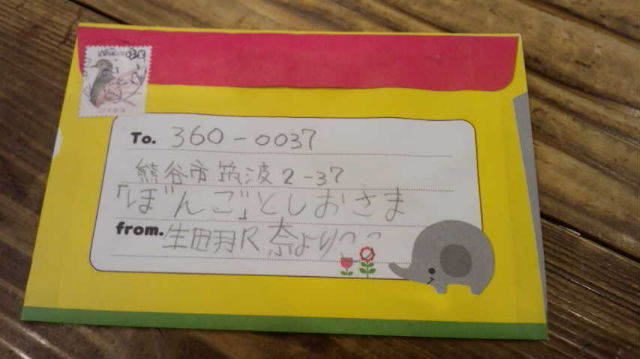 To. 360-0037
熊谷市筑波2-37
「ぼんご」としおさま
from. 生田羽R 奈より